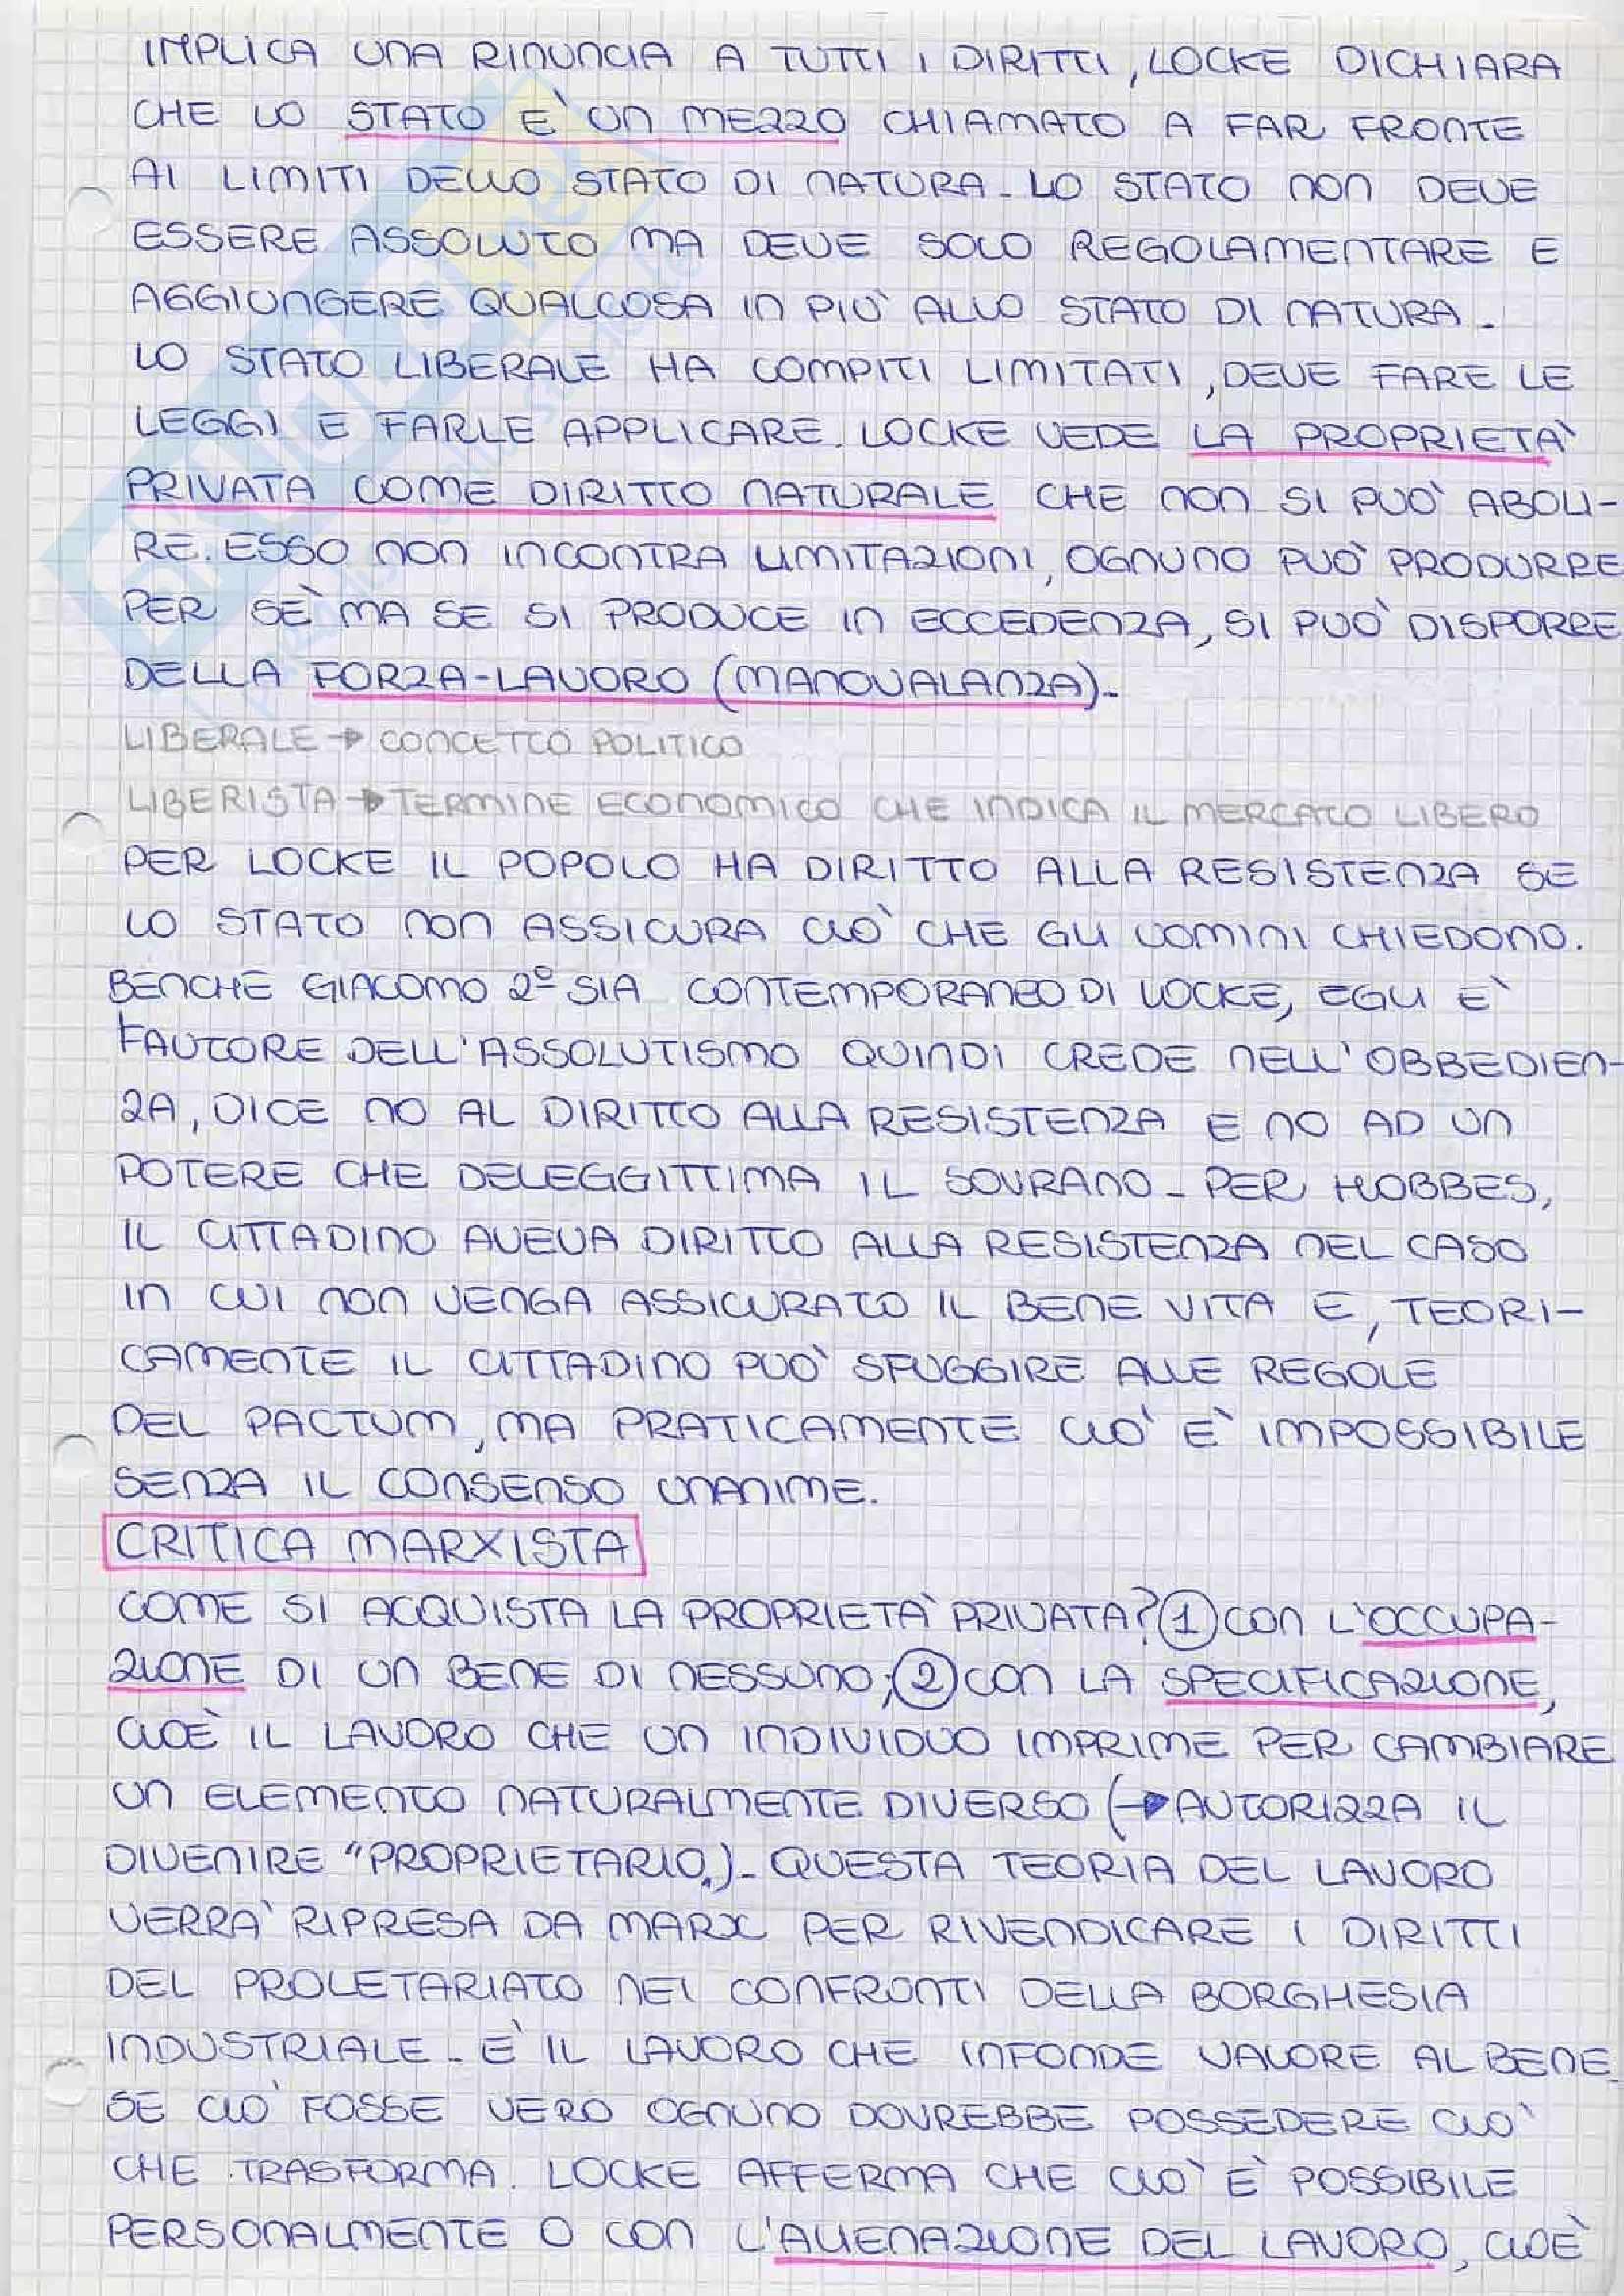 IMPLICA UNA RINUNCIA A TUTTI I DIRITTI, LOCKE DICHIARA
CHE LO STATO E' UN MEZZO CHIAMATO A FAR FRONTE
AI LIMITI DELLO STATO DI NATURA. LO STATO NON DEVE
ESSERE ASSOLUTO MA DEVE SOLO REGOLAMENTARE E
AGGIUNGERE QUALCOSA IN PIU' ALLO STATO DI NATURA.
LO STATO LIBERALE HA COMPITI LIMITATI, DEVE FARE LE
LEGGI E FARLE APPLICARE. LOCKE VEDE LA PROPRIETA'
PRIVATA COME DIRITTO NATURALE CHE NON SI PUO' ABOLI-
RE. ESSO NON INCONTRA LIMITAZIONI, OGNUNO PUO' PRODURRE
PER SE' MA SE SI PRODUCE IN ECCEDENZA, SI PUO' DISPORRE
DELLA FORZA-LAVORO (MANOVALANZA).
LIBERALE → CONCETTO POLITICO
LIBERISTA → TERMINE ECONOMICO CHE INDICA IL MERCATO LIBERO
PER LOCKE IL POPOLO HA DIRITTO ALLA RESISTENZA SE
LO STATO NON ASSICURA CIO' CHE GLI UOMINI CHIEDONO.
BENCHE' GIACOMO 2° SIA CONTEMPORANEO DI LOCKE, EGLI E'
FAUTORE DELL'ASSOLUTISMO QUINDI CREDE NELL'OBBEDIEN-
ZA, DICE NO AL DIRITTO ALLA RESISTENZA E NO AD UN
POTERE CHE DELEGGITTIMA IL SOVRANO. PER HOBBES,
IL CITTADINO AVEVA DIRITTO ALLA RESISTENZA NEL CASO
IN CUI NON VENGA ASSICURATO IL BENE VITA E, TEORI-
CAMENTE IL CITTADINO PUO' SFUGGIRE ALLE REGOLE
DEL PACTUM, MA PRATICAMENTE CIO' E' IMPOSSIBILE
SENZA IL CONSENSO UNANIME.
CRITICA MARXISTA
COME SI ACQUISTA LA PROPRIETA' PRIVATA? ① CON L'OCCUPA-
ZIONE DI UN BENE DI NESSUNO; ② CON LA SPECIFICAZIONE,
CIOE' IL LAVORO CHE UN INDIVIDUO IMPRIME PER CAMBIARE
UN ELEMENTO NATURALMENTE DIVERSO (→ AUTORIZZA IL
DIVENIRE "PROPRIETARIO"). QUESTA TEORIA DEL LAVORO
VERRA' RIPRESA DA MARX PER RIVENDICARE I DIRITTI
DEL PROLETARIATO NEI CONFRONTI DELLA BORGHESIA
INDUSTRIALE. E' IL LAVORO CHE INFONDE VALORE AL BENE.
SE CIO' FOSSE VERO OGNUNO DOVREBBE POSSEDERE CIO'
CHE TRASFORMA. LOCKE AFFERMA CHE CIO' E' POSSIBILE
PERSONALMENTE O CON L'ALIENAZIONE DEL LAVORO, CIOE'